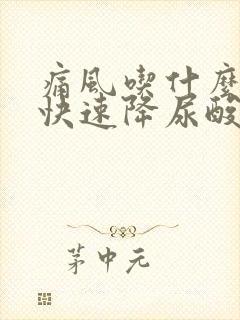 痛風喫什麼
快速降尿酸
茅中元